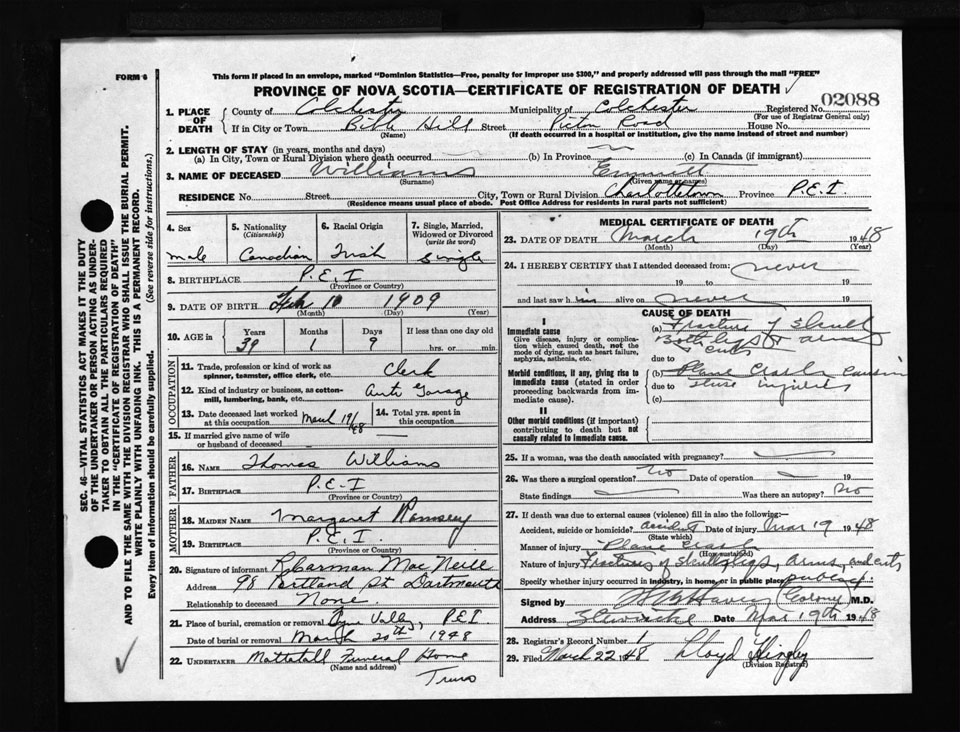 FORM 6
This form if placed in an envelope, marked "Dominion Statistics—Free, penalty for improper use $300," and properly addressed will pass through the mail "FREE"
PROVINCE OF NOVA SCOTIA—CERTIFICATE OF REGISTRATION OF DEATH ✓
SEC. 46—VITAL STATISTICS ACT MAKES IT THE DUTY
OF THE UNDERTAKER OR PERSON ACTING AS UNDER-
TAKER TO OBTAIN ALL THE PARTICULARS REQUIRED
IN THE "CERTIFICATE OF REGISTRATION OF DEATH"
AND TO FILE THE SAME WITH THE DIVISION REGISTRAR WHO SHALL ISSUE THE BURIAL PERMIT.
WRITE PLAINLY WITH UNFADING INK. THIS IS A PERMANENT RECORD.
Every item of information should be carefully supplied. (See reverse side for instructions.)
1. PLACE OF DEATH { County of Colchester Municipality of Colchester Registered No. 02088
(For use of Registrar General only)
If in City or Town Bible Hill Street Pictou Road House No.
(Name) (If death occurred in a hospital or institution, give the name instead of street and number)
2. LENGTH OF STAY (in years, months and days)
(a) In City, Town or Rural Division where death occurred (b) In Province (c) In Canada (if immigrant)
3. NAME OF DECEASED Williams Emmett
(Surname) (Given name or names)
RESIDENCE No. Street City, Town or Rural Division Charlottetown Province P.E.I.
(Residence means usual place of abode. Post Office Address for residents in rural parts not sufficient)
4. Sex 5. Nationality (Citizenship) 6. Racial Origin 7. Single, Married, Widowed or Divorced (write the word)
male Canadian Irish Single
8. BIRTHPLACE P.E.I
(Province or Country)
9. DATE OF BIRTH Feb 10 1909
(Month) (Day) (Year)
10. AGE in { Years Months Days If less than one day old
39 1 9 hrs. or min.
OCCUPATION
11. Trade, profession or kind of work as spinner, teamster, office clerk, etc. Clerk
12. Kind of industry or business, as cotton-mill, lumbering, bank, etc. Auto Garage
13. Date deceased last worked at this occupation March 19/48 14. Total yrs. spent in this occupation
15. If married give name of wife or husband of deceased
FATHER
16. NAME Thomas Williams
17. BIRTHPLACE P.E.I
(Province or Country)
MOTHER
18. MAIDEN NAME Margaret Ramsey
19. BIRTHPLACE P.E.I.
(Province or Country)
20. Signature of informant R Carman MacNeill
Address 98 Portland St. Dartmouth
Relationship to deceased None.
21. Place of burial, cremation or removal Tyne Valley, P.E.I
Date of burial or removal March 20th 1948
22. UNDERTAKER Mattatall Funeral Home
(Name and address)
Truro
MEDICAL CERTIFICATE OF DEATH
23. DATE OF DEATH March 19th 1948
(Month) (Day) (Year)
24. I HEREBY CERTIFY that I attended deceased from never
19 to 19
and last saw him alive on never 19
CAUSE OF DEATH
I
Immediate cause
Give disease, injury or complication which caused death, not the mode of dying, such as heart failure, asphyxia, asthenia, etc.
(a) Fracture of Skull
Both legs & arms
& cuts
due to
Morbid conditions, if any, giving rise to immediate cause (stated in order proceeding backwards from immediate).
(b) Plane Crash causing
due to these injuries
(c)
II
Other morbid conditions (if important) contributing to death but not causally related to immediate cause.
25. If a woman, was the death associated with pregnancy?
26. Was there a surgical operation? No Date of operation 19
State findings Was there an autopsy? No
27. If death was due to external causes (violence) fill in also the following:—
Accident, suicide or homicide? accident Date of injury Mar 19 1948
(State which)
Manner of injury Plane Crash
(How sustained)
Nature of injury Fractures of skull, legs, arms and cuts
Specify whether injury occurred in industry, in home, or in public place public
Signed by Coroner M.D.
Address Stewiacke Date Mar 19th 1948
28. Registrar's Record Number 1
29. Filed March 22 48 Lloyd Hingley
(Division Registrar)